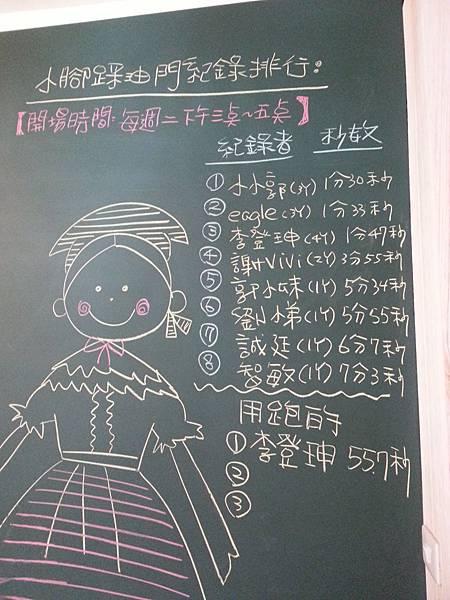 小腳踩油門紀錄排行:
【開場時間:每週二下午三点~五点】
紀錄者 秒數
① 小小郭(3Y) 1分30秒
② eagle(3Y) 1分33秒
③ 李登珅(4Y) 1分47秒
④ 謝Vivi(2Y) 3分55秒
⑤ 郭小妹(1Y) 5分34秒
⑥ 劉小弟(1Y) 5分55秒
⑦ 誠廷(1Y) 6分7秒
⑧ 智敏(1Y) 7分3秒
用跑百的
① 李登珅 55.7秒
②
③